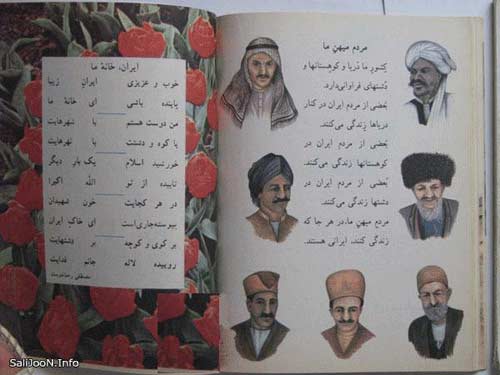 مردم میهن ما
کشور ما دریا و کوهستانها و
دشتهای فراوانی دارد.
بعضی از مردم ایران در کنار
دریاها زندگی می‌کنند.
بعضی از مردم ایران در
کوهستانها زندگی می‌کنند.
بعضی از مردم ایران در
دشتها زندگی می‌کنند.
مردم میهن ما، در هر جا که
زندگی کنند، ایرانی هستند.
ایران، خانهٔ ما
خوب و عزیزی ایران زیبا
پاینده باشی ای خانهٔ ما
من دوست هستم با شهرهایت
با کوه و دشتت با نهرهایت
خورشید اسلام یک بار دیگر
تابیده از تو الله اکبر
در هر کجایت خون شهیدان
پیوسته جاری است ای خاک ایران
بر کوی و کوچه بر دشتهایت
روییده لاله جانم فدایت
مصطفی رحماندوست
SaliJooN.Info